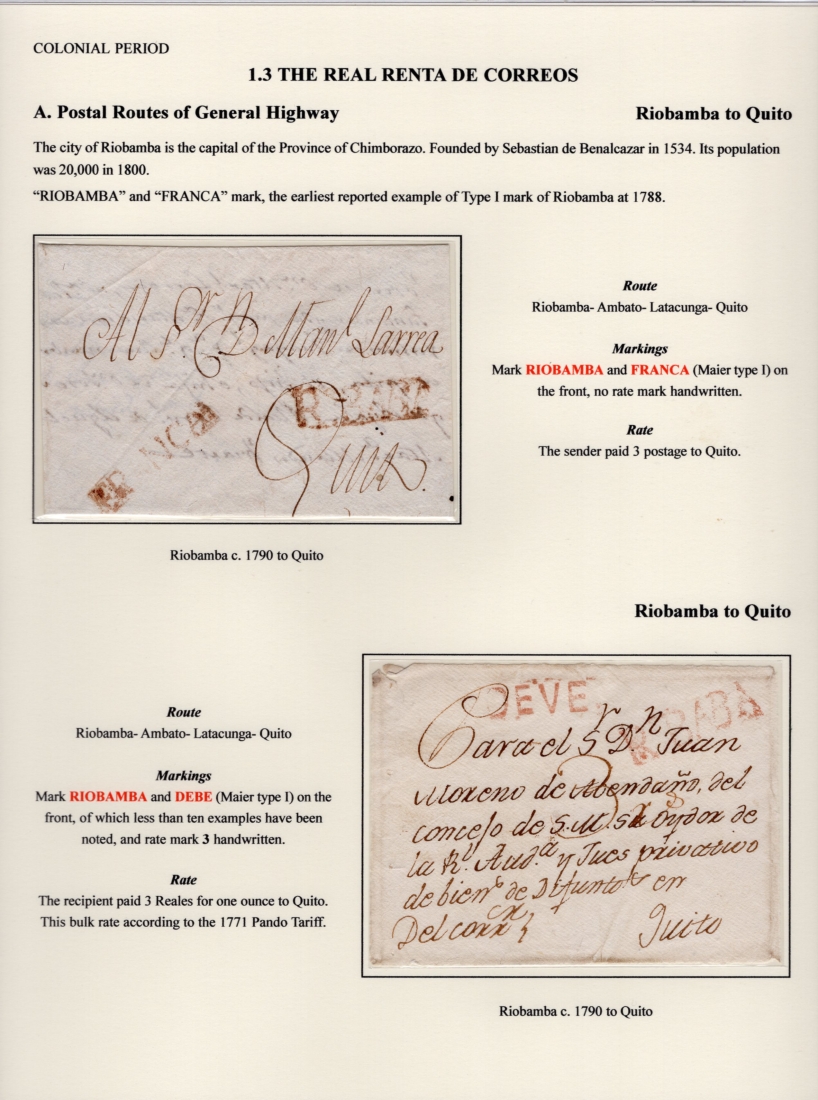 COLONIAL PERIOD
1.3 THE REAL RENTA DE CORREOS
A. Postal Routes of General Highway
Riobamba to Quito
The city of Riobamba is the capital of the Province of Chimborazo. Founded by Sebastian de Benalcazar in 1534. Its population
was 20,000 in 1800.
“RIOBAMBA” and “FRANCA” mark, the earliest reported example of Type I mark of Riobamba at 1788.
Al Sr. Dn. Manl Larrea
Quito.
Route
Riobamba- Ambato- Latacunga- Quito
Markings
Mark RIOBAMBA and FRANCA (Maier type I) on
the front, no rate mark handwritten.
Rate
The sender paid 3 postage to Quito.
Riobamba c. 1790 to Quito
Riobamba to Quito
Route
Riobamba- Ambato- Latacunga- Quito
Markings
Mark RIOBAMBA and DEBE (Maier type I) on the
front, of which less than ten examples have been
noted, and rate mark 3 handwritten.
Rate
The recipient paid 3 Reales for one ounce to Quito.
This bulk rate according to the 1771 Pando Tariff.
DEVE
Para el Sr Dn Juan
Moreno de Abendaño, del
concejo de S.M. Oydor de
la Rl. Auda. y Jues privativo
de biens de Difuntos en
Quito
Riobamba c. 1790 to Quito